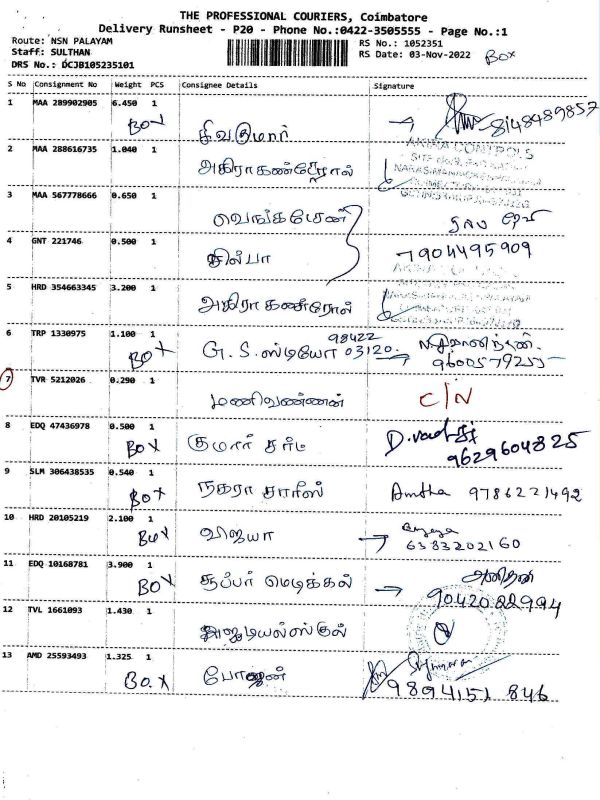 THE PROFESSIONAL COURIERS, Coimbatore
Delivery Runsheet - P20 - Phone No.:0422-3505555 - Page No.:1
Route: NSN PALAYAM RS No.: 1052351
Staff: SULTHAN RS Date: 03-Nov-2022 Box
DRS No.: DCJB105235101
S No Consignment No Weight PCS Consignee Details Signature
1 MAA 289902905 6.450 1
Box சிவகுமார் 8148489857
2 MAA 288616735 1.040 1 AKIRA CONTROLS
அகிரா கண்ட்ரோல்
3 MAA 567778666 0.650 1
வெங்கடேசன்
4 GNT 221746 0.500 1 7904495909
சில்பா
5 HRD 354663345 3.200 1
அகிரா கண்ரோல்
6 TRP 1330975 1.100 1 98422
Box G.S. ஸ்டியோ 03120 9600579255
7 TVR 5212026 0.290 1
மணிவண்ணன் C/N
8 EDQ 47436978 0.500 1
Box குமார் சர்ம 9629604825
9 SLM 306438535 0.540 1
Box நகரா சாரீஸ் Amtha 9786221492
10 HRD 20105219 2.100 1
Box விஜயா 6383202160
11 EDQ 10168781 3.900 1
Box சூப்பர் மெடிக்கல் 9042022994
12 TVL 1661093 1.430 1
13 AMD 25593493 1.325 1
Box போஜன் 9894151 846